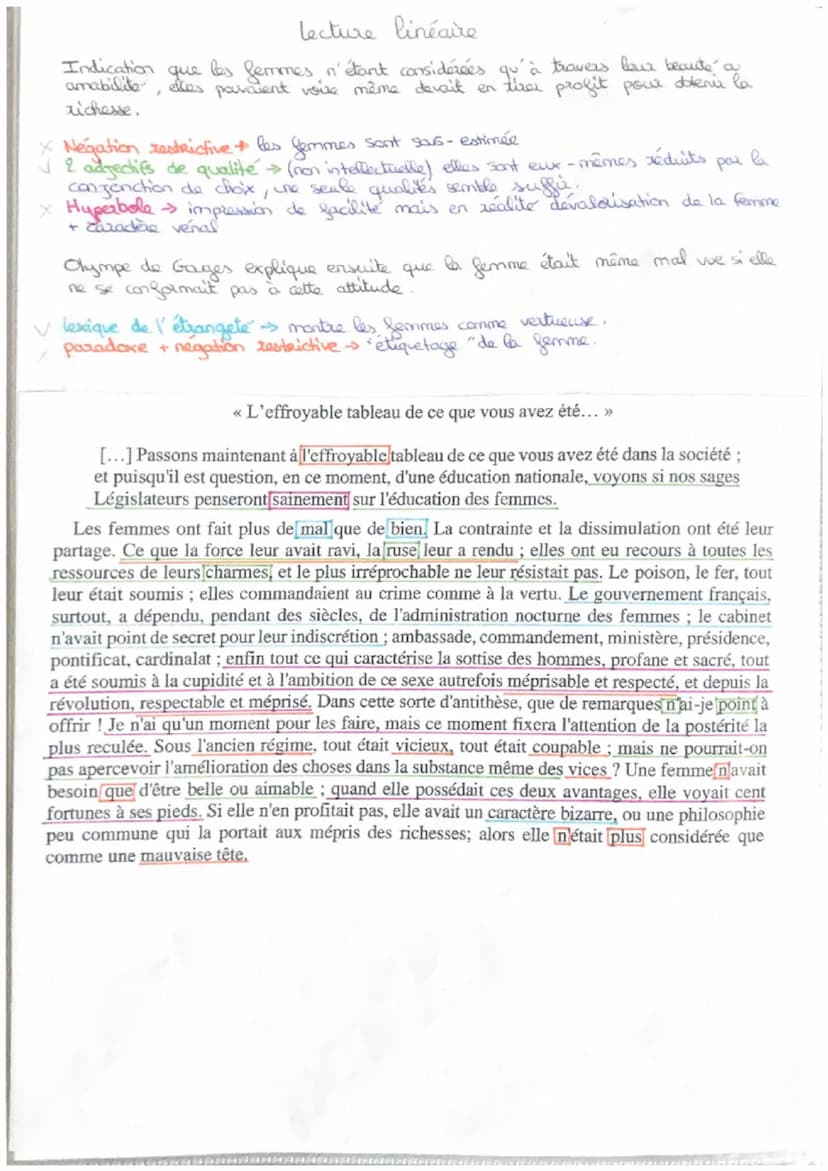 Lecture linéaire
Indication que les femmes, n'étant considérées qu'à travers leur beauté, a
amabilité, elles pouvaient voire même devait en tirer profit pour obtenir la
richesse.
x Négation restrictive → les femmes sont sous-estimée
√ 2 adjectifs de qualité → (non intellectuelle) elles sont eux-mêmes réduits par la
conjonction de choix, une seule qualités semble suffir.
x Hyperbole → impression de facilité mais en réalité dévalorisation de la femme
+ caractère vénal
Olympe de Gouges explique ensuite que la femme était même mal vue si elle
ne se conformait pas à cette attitude.
√ lexique de l'étrangeté → montre les femmes comme vertueuse.
paradoxe + négation restrictive → "étiquetage" de la femme.
« L'effroyable tableau de ce que vous avez été... »
[...] Passons maintenant à l'effroyable tableau de ce que vous avez été dans la société ;
et puisqu'il est question, en ce moment, d'une éducation nationale, voyons si nos sages
Législateurs penseront sainement sur l'éducation des femmes.
Les femmes ont fait plus de mal que de bien. La contrainte et la dissimulation ont été leur
partage. Ce que la force leur avait ravi, la ruse leur a rendu ; elles ont eu recours à toutes les
ressources de leurs charmes, et le plus irréprochable ne leur résistait pas. Le poison, le fer, tout
leur était soumis ; elles commandaient au crime comme à la vertu. Le gouvernement français,
surtout, a dépendu, pendant des siècles, de l'administration nocturne des femmes ; le cabinet
n'avait point de secret pour leur indiscrétion ; ambassade, commandement, ministère, présidence,
pontificat, cardinalat ; enfin tout ce qui caractérise la sottise des hommes, profane et sacré, tout
a été soumis à la cupidité et à l'ambition de ce sexe autrefois méprisable et respecté, et depuis la
révolution, respectable et méprisé. Dans cette sorte d'antithèse, que de remarques n'ai-je point à
offrir ! Je n'ai qu'un moment pour les faire, mais ce moment fixera l'attention de la postérité la
plus reculée. Sous l'ancien régime, tout était vicieux, tout était coupable ; mais ne pourrait-on
pas apercevoir l'amélioration des choses dans la substance même des vices ? Une femme n'avait
besoin que d'être belle ou aimable ; quand elle possédait ces deux avantages, elle voyait cent
fortunes à ses pieds. Si elle n'en profitait pas, elle avait un caractère bizarre, ou une philosophie
peu commune qui la portait aux mépris des richesses; alors elle n'était plus considérée que
comme une mauvaise tête.